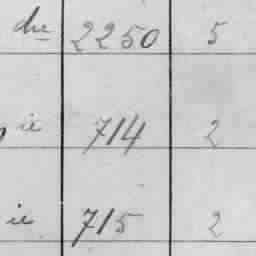 che 2250 5
ie 714 2
ie 715 2